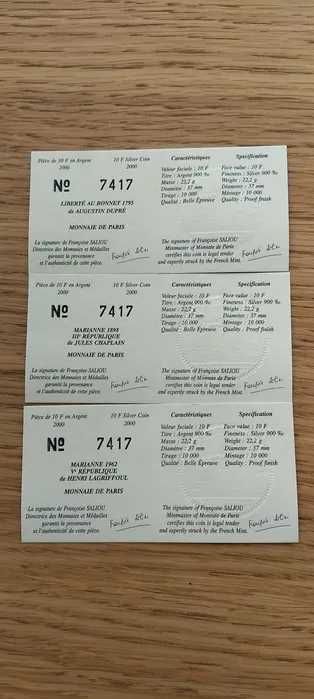 Pièce de 10 F en Argent
2000
10 F Silver Coin
2000
Nº 7417
LIBERTÉ AU BONNET 1793
de AUGUSTIN DUPRÉ
MONNAIE DE PARIS
La signature de Françoise SALIOU
Directrice des Monnaies et Médailles
garantit la provenance
et l'authenticité de cette pièce.
Caractéristiques
Valeur faciale : 10 F
Titre : Argent 900 ‰
Masse : 22,2 g
Diamètre : 37 mm
Tirage : 10 000
Qualité : Belle Épreuve
Specification
Face value : 10 F
Fineness : Silver 900 ‰
Weight : 22,2 g
Diameter : 37 mm
Mintage : 10 000
Quality : Proof finish
The signature of Françoise SALIOU
Mintmaster of Monnaie de Paris
certifies this coin is legal tender
and expertly struck by the French Mint.
Pièce de 10 F en Argent
2000
10 F Silver Coin
2000
Nº 7417
MARIANNE 1898
IIIᵉ RÉPUBLIQUE
de JULES CHAPLAIN
MONNAIE DE PARIS
La signature de Françoise SALIOU
Directrice des Monnaies et Médailles
garantit la provenance
et l'authenticité de cette pièce.
Caractéristiques
Valeur faciale : 10 F
Titre : Argent 900 ‰
Masse : 22,2 g
Diamètre : 37 mm
Tirage : 10 000
Qualité : Belle Épreuve
Specification
Face value : 10 F
Fineness : Silver 900 ‰
Weight : 22,2 g
Diameter : 37 mm
Mintage : 10 000
Quality : Proof finish
The signature of Françoise SALIOU
Mintmaster of Monnaie de Paris
certifies this coin is legal tender
and expertly struck by the French Mint.
Pièce de 10 F en Argent
2000
10 F Silver Coin
2000
Nº 7417
MARIANNE 1962
Vᵉ RÉPUBLIQUE
de HENRI LAGRIFFOUL
MONNAIE DE PARIS
La signature de Françoise SALIOU
Directrice des Monnaies et Médailles
garantit la provenance
et l'authenticité de cette pièce.
Caractéristiques
Valeur faciale : 10 F
Titre : Argent 900 ‰
Masse : 22,2 g
Diamètre : 37 mm
Tirage : 10 000
Qualité : Belle Épreuve
Specification
Face value : 10 F
Fineness : Silver 900 ‰
Weight : 22,2 g
Diameter : 37 mm
Mintage : 10 000
Quality : Proof finish
The signature of Françoise SALIOU
Mintmaster of Monnaie de Paris
certifies this coin is legal tender
and expertly struck by the French Mint.